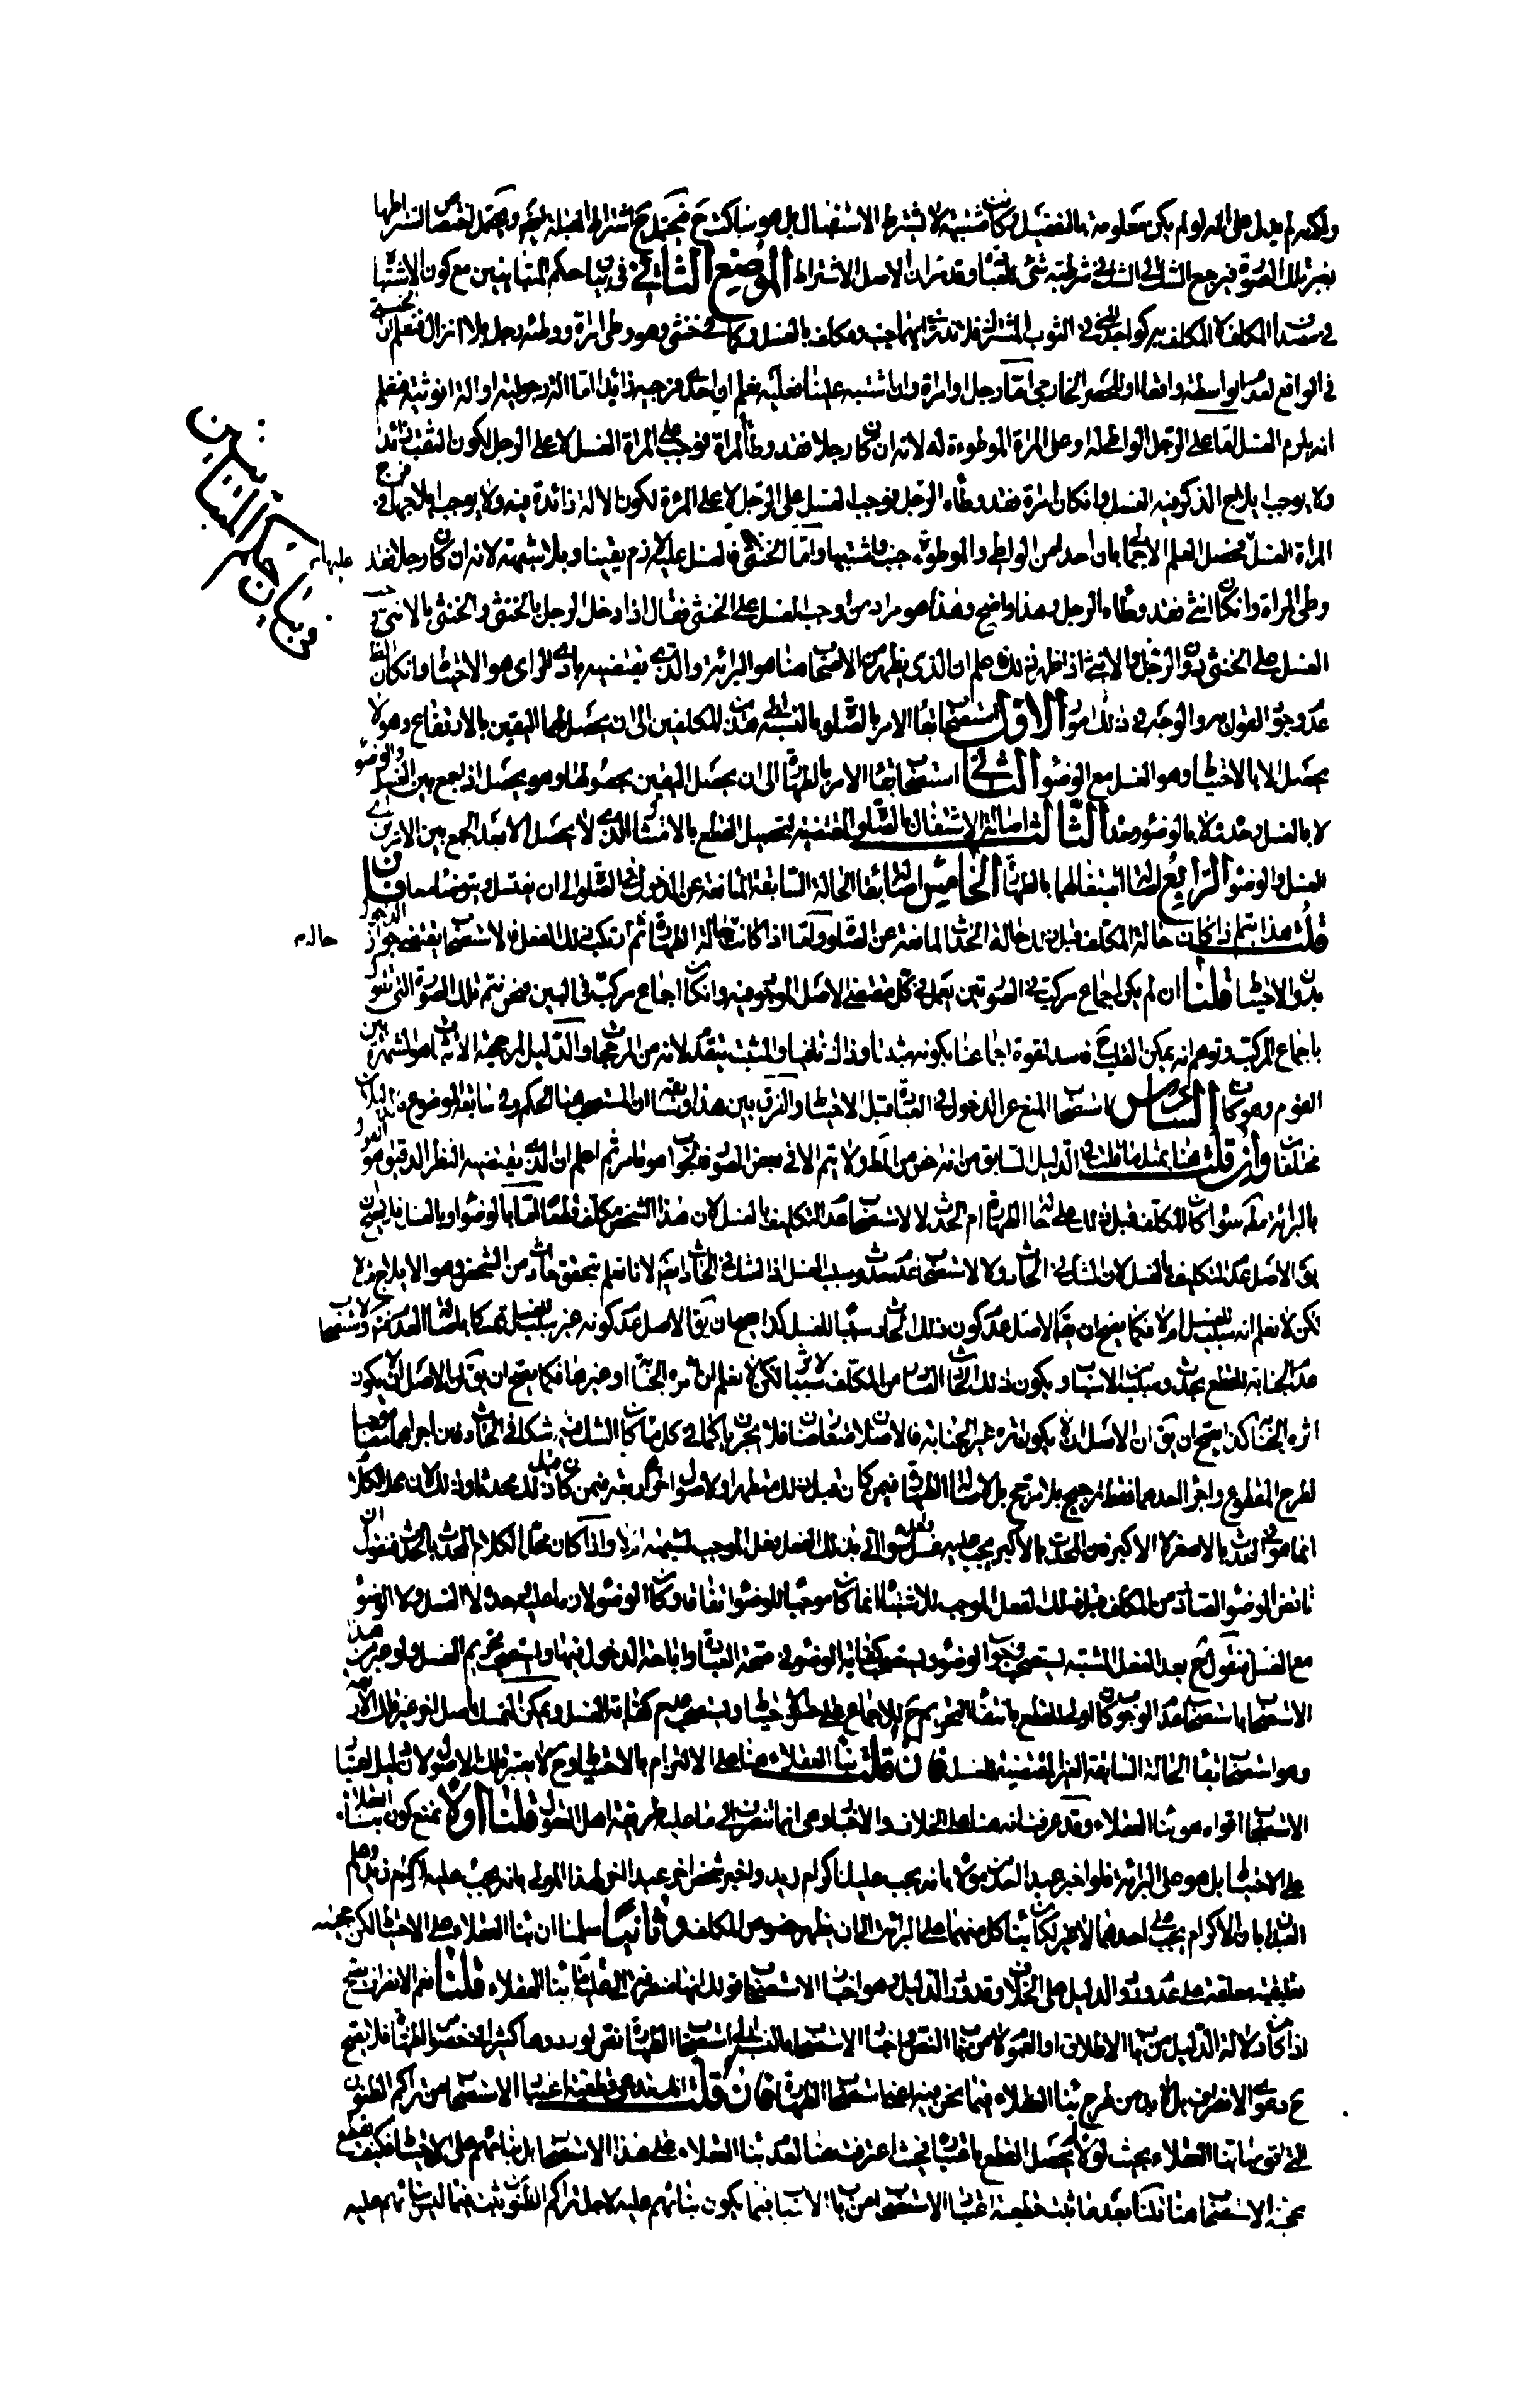 ولكنه لم يدل على انه لو لم يكن معلومة بالتفصيل وكانت مشتبهة لا يشترط الاستقبال بل هو ساكت ح فيحتمل ح اشتراط القبلة ايضا ويحتمل اختصاص اشتراطها
بغير تلك الصورة فيرجع الشك الى الشك في شرطية شئ للعبادة وقد مر ان الاصل الاشتراط الموضع الثاني في بيان حكم المتباينين مع كون الاشتباه
في مصداق المكلف لا المكلف به كواجدي المني في الثوب المشترك فلا ندري ايهما جنب ومكلف بالغسل وكما في خنثى وهو وطئ امراة ووطئه رجل بلا انزال فنعلم ان الخنثى
في الواقع لعدم الواسطة واقعا او للحصر الخارجي اما رجل او امراة وان اشتبه علينا فعليه نعلم ان احد فرجيه زائد اما الة رجولية او الة انوثية فنعلم
انه يلزم الغسل اما على الرجل الواطئ له او على المراة الموطوءة له لانه ان كان رجلا فقد وطأ المراة فوجب على المراة الغسل لا على الرجل لكون الثقب زائدا
ولا يوجب ايلاج الذكر فيه الغسل وان كان امراة فقد وطأه الرجل فوجب الغسل على الرجل لا على المراة لكون الالة زائدة فيه ولا يوجب ايلاجها في فرج
المراة الغسل فحصل العلم الاجمالي بان احدا من الواطئ والموطوء جنب واشتبها واما الخنثى فالغسل عليه لازم يقينا وبلا شبهة لانه ان كان رجلا فقد
عليهما
وطئ المراة وان كان انثى فقد وطأه الرجل وهذا واضح وهذا هو مراد من اوجب الغسل على الخنثى فقال اذا دخل الرجل بالخنثى والخنثى بالانثى وجب
في بيان حكم المتباينين
الغسل على الخنثى دون الرجل والانثى اذا ظهر ذلك علم ان الذي يظهر من الاصحاب هنا هو البرائة والذي يقتضيه بادي الراي هو الاحتياط وان كان الظ
عدم وجود القول به والوجه في ذلك امور الاول استصحاب بقاء الامر بالصلوة بالنسبة الى هذين المكلفين الى ان يحصل لهما اليقين بالارتفاع وهو لا
يحصل الا بالاحتياط وهو الغسل مع الوضوء الثاني استصحاب بقاء الامر بالطهارة الى ان يحصل اليقين بحصولها وهو يحصل اذا جمع بين الغسل والوضوء
لا بالغسل وحده ولا بالوضوء وحده الثالث اصالة الاشتغال بالصلوة المقتضية لتحصيل القطع بالامتثال الذي لا يحصل الا بعد الجمع بين الامرين اي
الغسل والوضوء الرابع اصالة اشتغالهما بالطهارة الخامس اصالة بقاء الحالة السابقة المانعة عن الدخول في الصلوة الى ان يغتسل ويتوضأ معا فان
قلت هذا يتم اذا كان حالة المكلف قبل ذلك حالة الحدث المانعة عن الصلوة واما اذا كانت حالة الطهارة ثم ارتكب ذلك الفعل فالاستصحاب يقتضي جواز الدخول
حاله
بدون الاحتياط قلنا ان لم يكن اجماع مركب في الصورتين يعمل في كل بمقتضى الاصل الموجود فيه وان كان اجماع مركب في البين فنحن نتمم تلك الصورة التي ذكر
باجماع المركب وتوهم انه يمكن القلب ح فاسد لقوة اجماعنا بكونه مثبتا وذلك نافيا والمثبت يتقدم لانه من المرجحات والدليل لمرجحية الاثبات هو الشهرة بين
القوم وهو كاف السادس استصحاب المنع عن الدخول في العبادة قبل الاحتياط والفرق بين هذا وسابقه ان المستصحب هنا الحكم وفي سابقه الموضوع فالدليلان
مختلفان وان قلت هنا بمثل ما قلت في الدليل السابق من انه اخص من المط ولا يتم الا في بعض الصور فالجواب هو ما مر ثم اعلم ان الذي يقتضيه النظر الدقيق هو القول
بالبرائة مط سواء كان المكلف قبل ذلك على حالة الطهارة ام الحدث لا لاستصحاب عدم التكليف بالغسل لان هذا الشخص مكلف قطعا اما بالوضوء او بالغسل فلا يصح ان
يق الاصل عدم التكليف بالغسل لان الشك في الحادث ولا لاستصحاب عدم حدوث سبب الغسل اذ الشك في الحادث ايضا لانا نعلم بتحقق حادث من الشخص وهو الايلاج في الفرج
لكن لا نعلم انه سبب للغسل ام لا فكما يصح ان يق الاصل عدم كون ذلك الحادث سببا للغسل كذا يصح ان يق الاصل عدم كونه غير سبب للغسل تمسكا باصالة العدم فيه ولا لاستصحاب
عدم الجنابة للقطع بحدوث سبب الاسباب ويكون ذلك الحادث الصادر من المكلف سببا لاثر لكن لا نعلم ان اثره الجنابة او غيرها فكما يصح ان يق ان الاصل ان لا يكون
اثره الجنابة كذا يصح ان يق ان الاصل ان لا يكون اثره غير الجنابة فالاصلان متعارضان فلا يجريان كما في كل ما كان الشك فيه شكا في الحادث فان اجرائهما معا موجبا
لطرح المقطوع واجراء احدهما فقط ترجيح بلا مرجح بل لاصالة الطهارة فيمن كان قبل ذلك متطهرا ولاصول اخر اربعة فيمن كان قبل ذلك محدثا وذلك لان محل الكلام
انما هو في المحدث بالاصغر لا الاكبر فان المحدث بالاكبر يجب عليه غسل واحد سواء اتى بذلك الفعل بفعل الموجب لشبهة ام لا واذا كان محل الكلام المحدث بالحدث فنقول ان
ناقض الوضوء الصادر من المكلف قبل ذلك الفعل الموجب للاشتباه انما كان موجبا للوضوء اتفاقا وكان الوضوء لازما عليه وحده لا الغسل ولا الوضوء
مع الغسل فنقول ح بعد الفعل المشتبه يستصحب وجوب الوضوء ويستصحب كفاية الوضوء في صحة العبادة واباحة الدخول فيها ويستصحب تحريم الغسل ولو عبر من هذا
الاستصحاب باستصحاب عدم الوجوب كان اولى للقطع بانتفاء التحريم ح للاجماع على حسن الاحتياط ويستصحب عدم كفاية الغسل ويمكن التمسك باصل اخر غير تلك الاربعة
وهو استصحاب بقاء الحالة السابقة الغير المقتضية للغسل فان قلت بناء العقلاء هنا على الالتزام بالاحتياط وح لا يعتبر تلك الاصول لان دليل اعتبار
الاستصحاب اقواه هو بناء العقلاء وقد عرفت انه هنا على الخلاف والاخبار هي انما تنصرف الى ما عليه طريقة اهل العقول قلنا اولا نمنع كون بناء العقلاء
على الاحتياط بل هو على البرائة فلو اخبر عبد العبدين مولا بانه يجب عليك اكرام زيد واخبر شخص اخر عبد اخر لهذا المولى بانه يجب عليه اكرام زيد وعلم
العبدان بان الاكرام يجب على احدهما لا غير لكان بناء كل منهما على البرائة الى ان يظهر خصوص المكلف وثانيا سلمنا ان بناء العقلاء على الاحتياط لكن حجية
تعليقية معلقة على عدم ورود الدليل على الخلاف وقد ورد الدليل وهو اخبار الاستصحاب قولك انها منصرفة الى ما عليه بناء العقلاء قلنا نعم الانصراف يصح
اذا كان دلالة الدليل من باب الاطلاق او العموم لا من باب النص واخبار الاستصحاب بالنسبة الى استصحاب الطهارة نص لورودها كثيرا في خصوص الطهارة فلا يصح
ح دعوى الانصراف بل لا بد من طرح بناء العقلاء فيما نحن فيه اعني استصحاب الطهارة فان قلت المستند في قطعية اعتبار الاستصحاب من تراكم الظنون
التي اقويها بناء العقلاء بحيث لولاه لم يحصل القطع باعتباره فحيث اعترفت هنا لعدم بناء العقلاء على هذا الاستصحاب بل بنائهم على الاحتياط فكيف تقطع
بحجية الاستصحاب هنا قلنا بعد ما ثبت قطعية اعتبار الاستصحاب من باب الاسباب فيما يكون بنائهم عليه لاجل تراكم الظنون يثبت فيما ليس بنائهم عليه